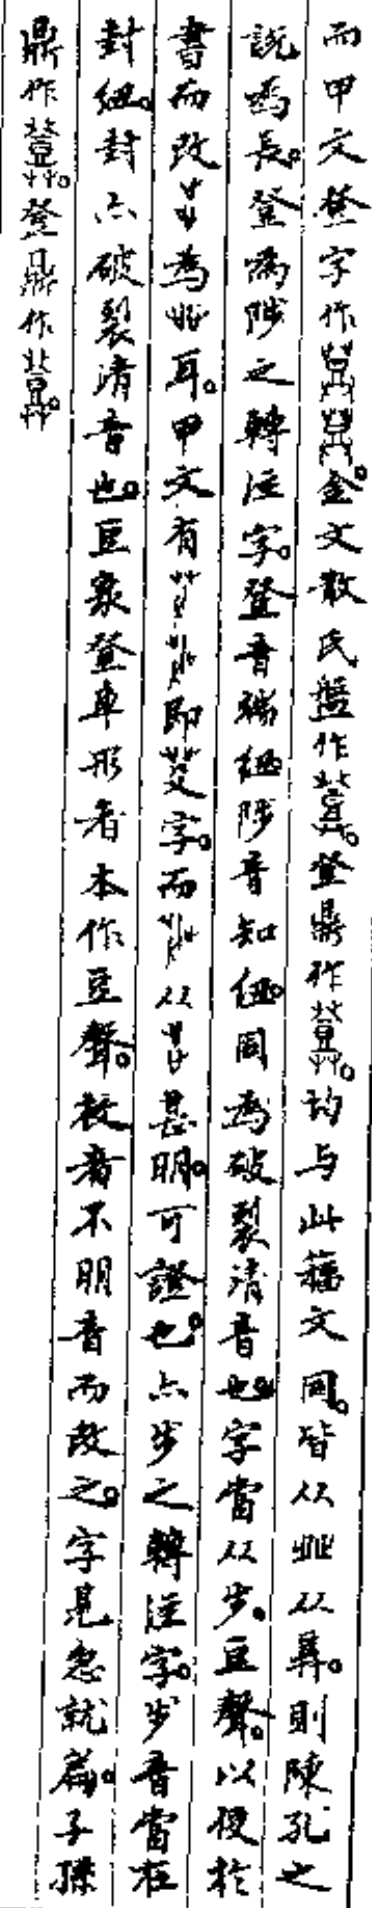 而甲文登字作金文散氏盤作登鼎作均与此籒文同。皆从癶从𢍪。則陳孔之
說為長。登為陟之轉注字。登音端紐陟音知紐。同為破裂清音也。字當从步。豆聲。以便於
書而改為癶耳。甲文有即癹字。而从甚明。可證也。亦步之轉注字。步音當在
封紐。封亦破裂清音也。豆象登車形者本作豆聲。校者不明音而改之。字見急就篇。子孫
鼎作。登鼎作。